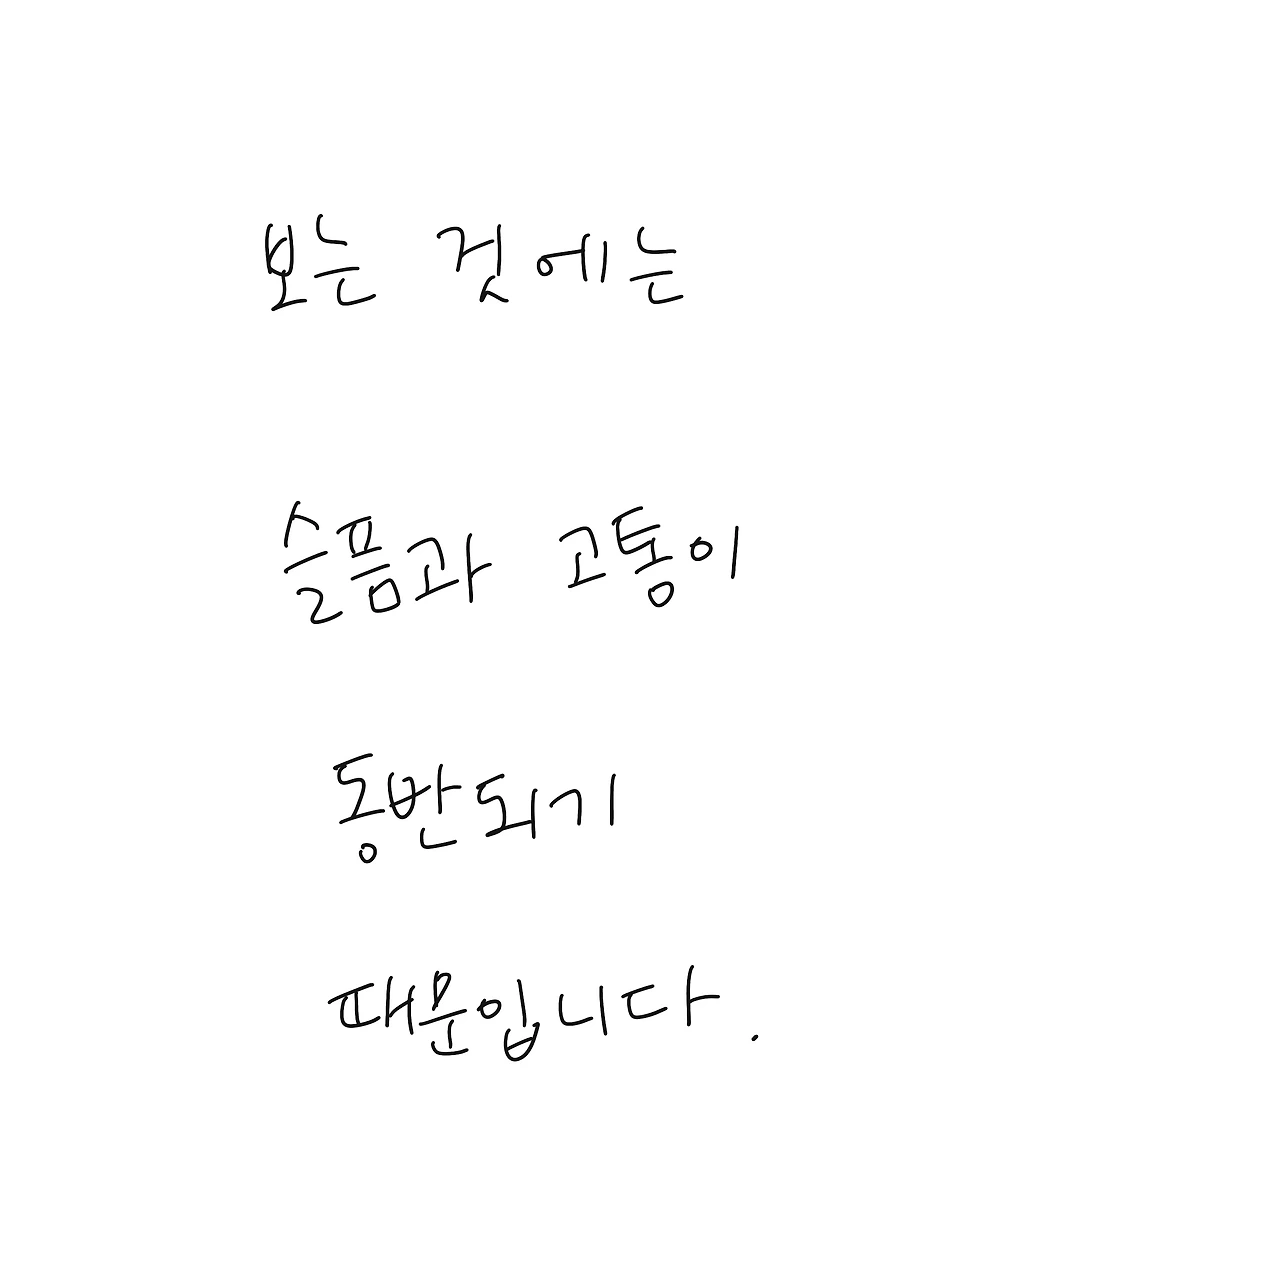 보는 것에는
슬픔과 고통이
동반되기
때문입니다.